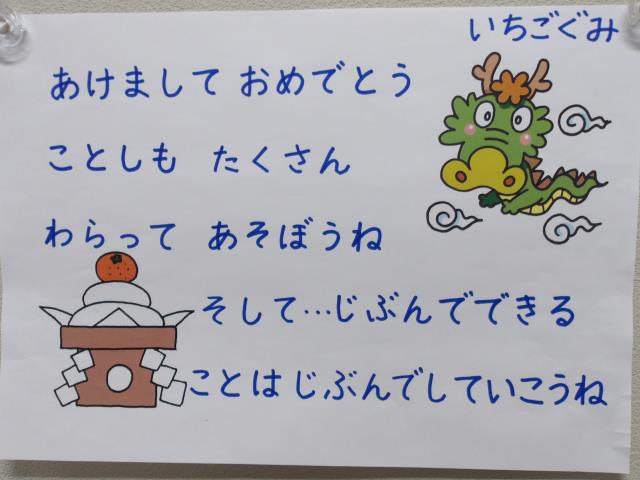 いちごぐみ
あけまして おめでとう
ことしも たくさん
わらって あそぼうね
そして…じぶんでできる
ことはじぶんでしていこうね